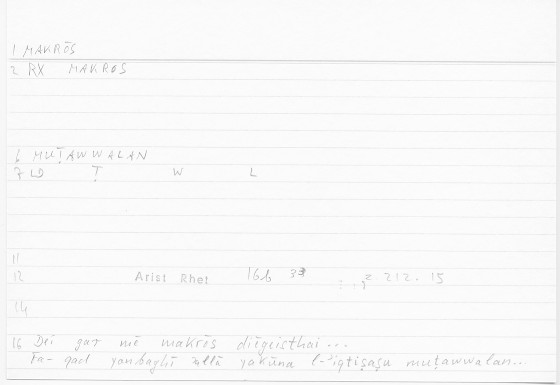 1 MAKRŌS
2 RX MAKROS
6 MUṬAWWALAN
7 LD Ṭ W L
11
12 Arist Rhet 16b 37 = 212.15
14
16 Dei gar mē makrōs diēgeisthai...
Fa-qad yanbaghī allā yakūna l-iqtiṣaṣu muṭawwalan...